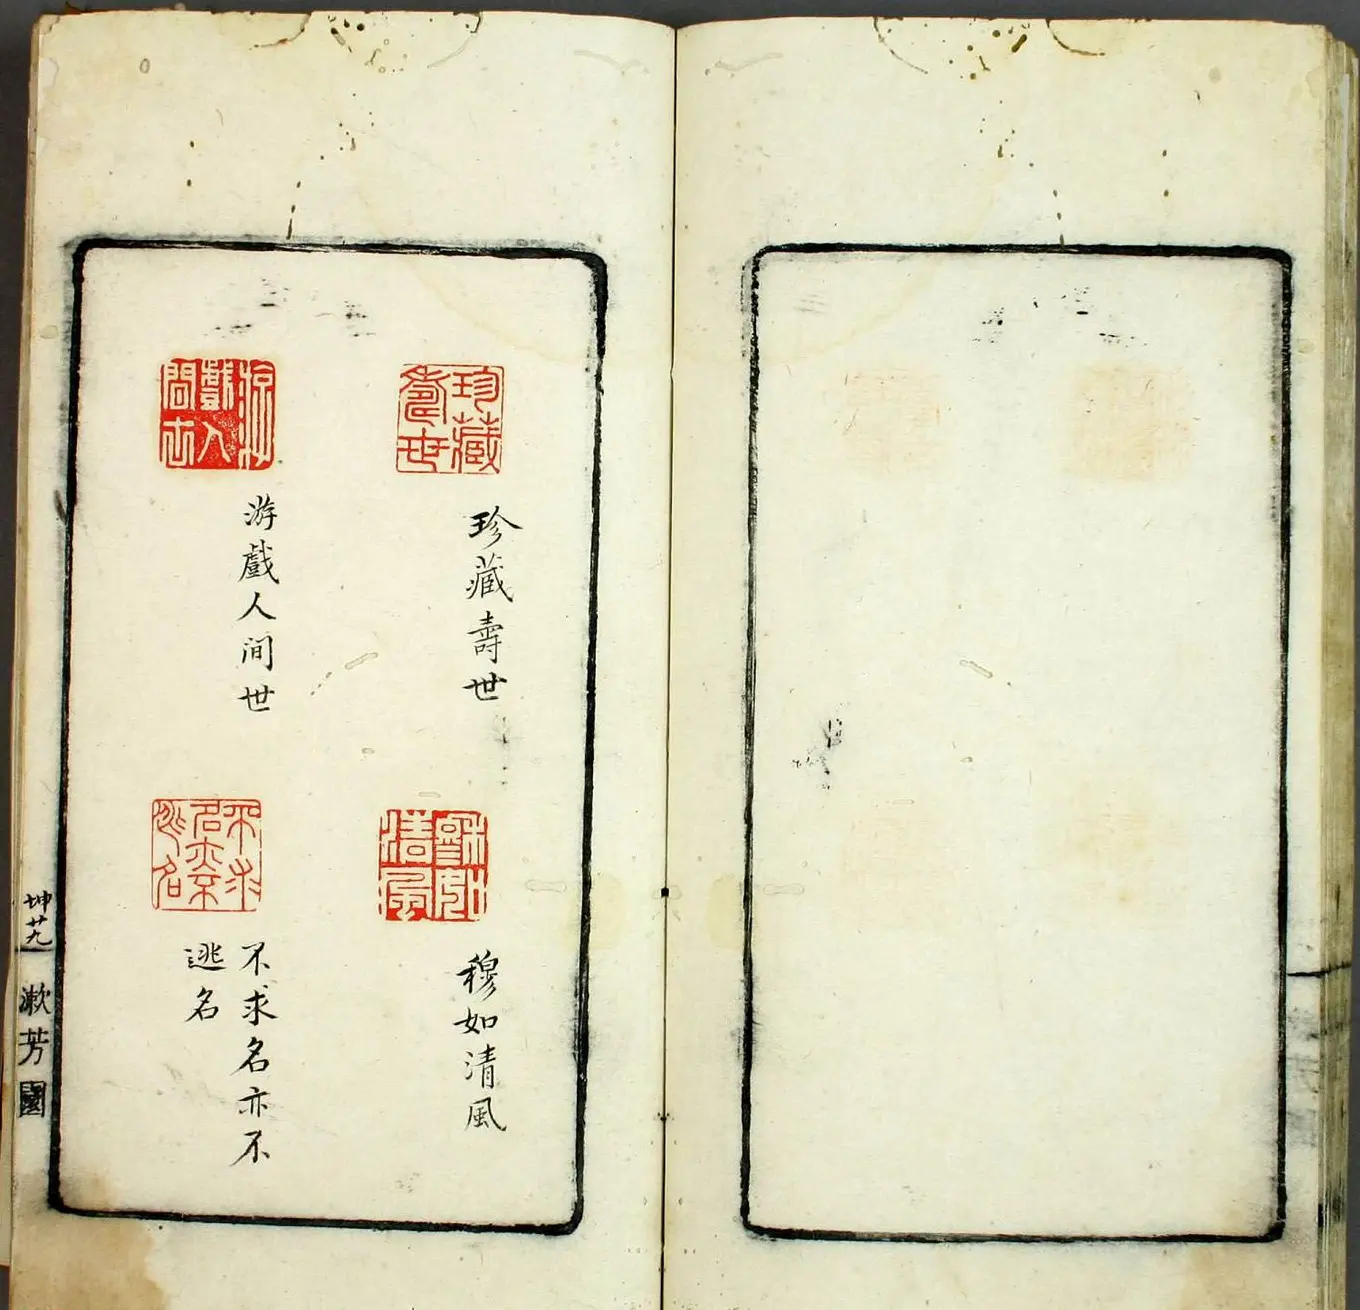 珍藏壽世
珍藏壽世
游戲人間世
游戲人间世
穆如清風
穆如清風
不求名亦不逃名
不求名亦不
逃名
坤廿九
漱芳園